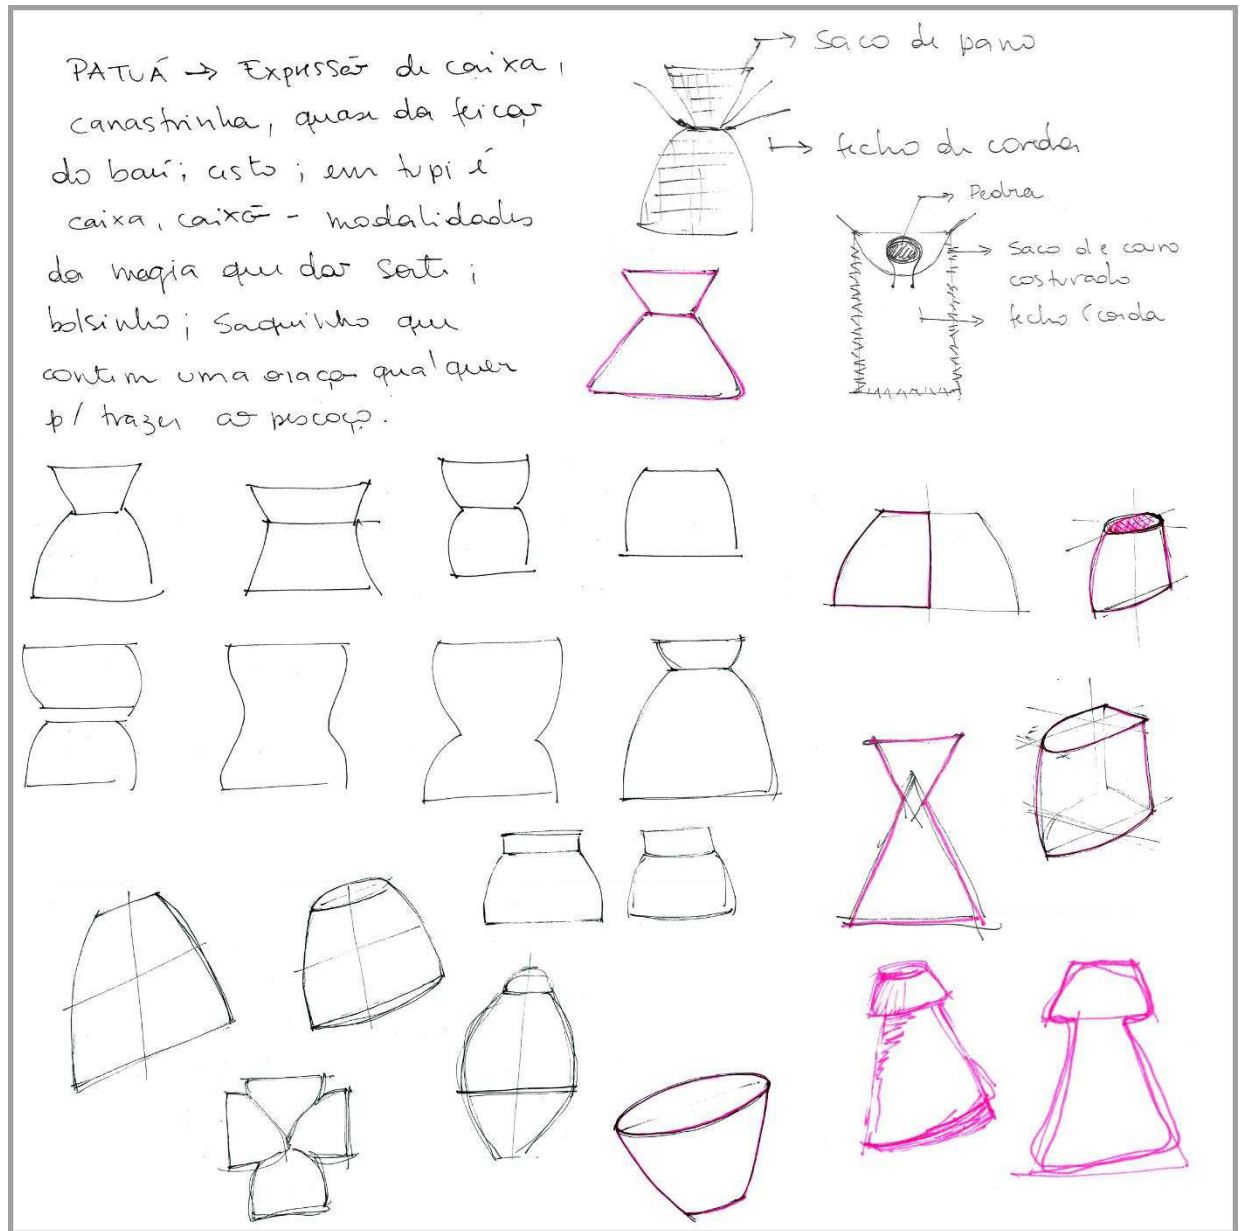 PATUÁ → Expressão de caixa,
canastrinha, quase da feição
do baú; cisto; em tupi é
caixa, caixão - modalidades
da magia que dar sorte;
bolsinho; saquinho que
contém uma oração qualquer
p/ trazer ao pescoço.
→ saco de pano
→ fecho de corda
→ Pedra
→ saco de couro
costurado
→ fecho (corda